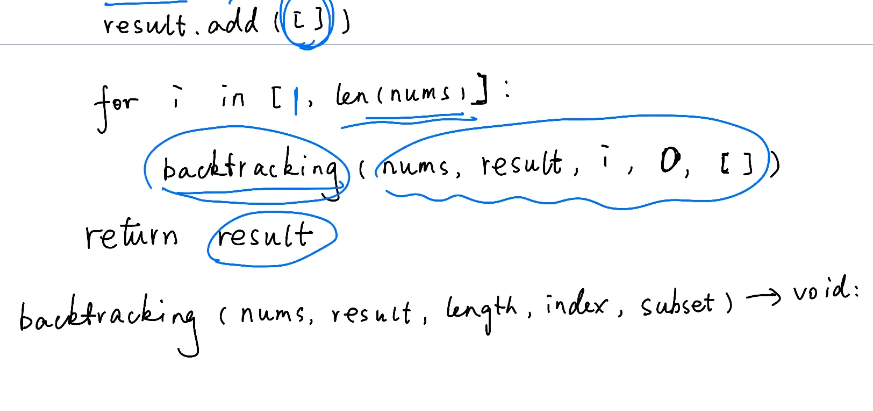 result.add([])
for i in [1, len(nums)]:
backtracking(nums, result, i, 0, [])
return result
backtracking(nums, result, length, index, subset) → void: